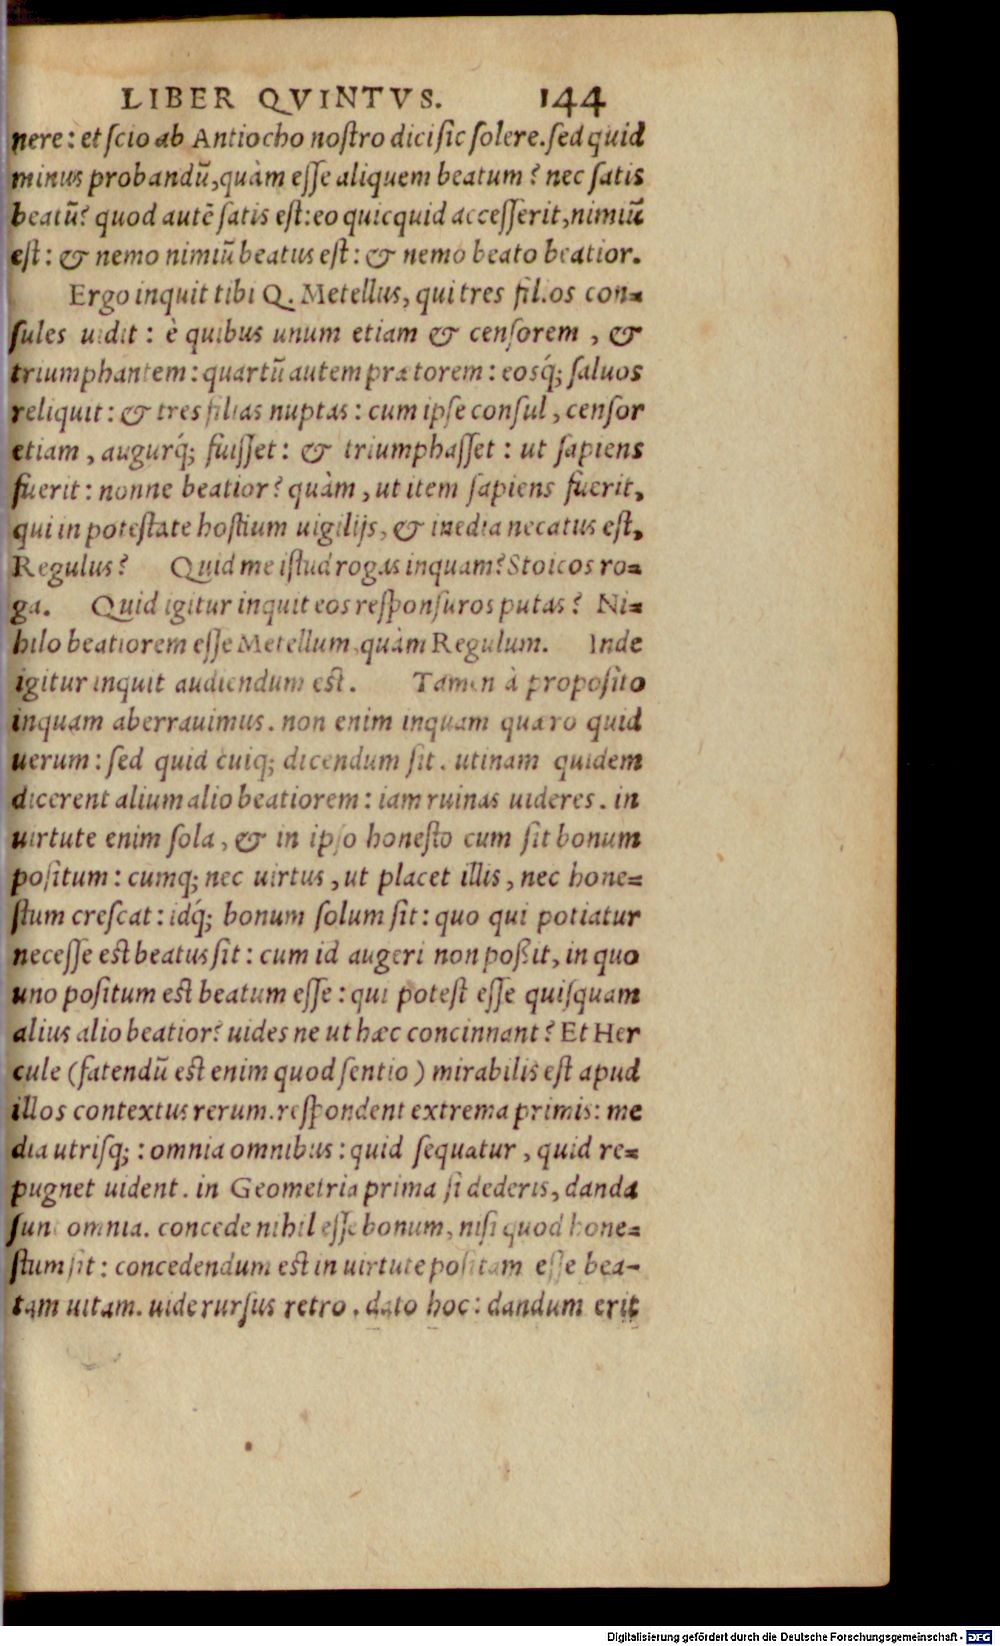 LIBER QVINTVS. 144
nere: et ſcio ab Antiocho noſtro dici ſic ſolere. ſed quid
minus probandũ, quàm eſſe aliquem beatum? nec ſatis
beatũ? quod autẽ ſatis eſt: eo quicquid acceſſerit, nimiũ
eſt: & nemo nimiũ beatus eſt: & nemo beato beatior.
Ergo inquit tibi Q. Metellus, qui tres filios con=
ſules uidit: è quibus unum etiam & cenſorem, &
triumphantem: quartũ autem prætorem: eosq́; ſaluos
reliquit: & tres filias nuptas: cum ipſe conſul, cenſor
etiam, augurq́; fuiſſet: & triumphaſſet: ut ſapiens
fuerit: nonne beatior? quàm, ut item ſapiens fuerit,
qui in poteſtate hoſtium uigilijs, & inedia necatus eſt,
Regulus? Quid me iſtud rogas inquam? Stoicos ro=
ga. Quid igitur inquit eos reſponſuros putas? Ni=
hilo beatiorem eſſe Metellum, quàm Regulum. Inde
igitur inquit audiendum eſt. Tamen à propoſito
inquam aberrauimus. non enim inquam quæro quid
uerum: ſed quid cuiq; dicendum ſit. utinam quidem
dicerent alium alio beatiorem: iam ruinas uideres. in
uirtute enim ſola, & in ipſo honeſto cum ſit bonum
poſitum: cumq; nec uirtus, ut placet illis, nec hone=
ſtum creſcat: idq́; bonum ſolum ſit: quo qui potiatur
neceſſe eſt beatus ſit: cum id augeri non poßit, in quo
uno poſitum eſt beatum eſſe: qui poteſt eſſe quiſquam
alius alio beatior? uides ne ut hæc concinnant? Et Her
cule (fatendũ eſt enim quod ſentio) mirabilis eſt apud
illos contextus rerum. reſpondent extrema primis: me
dia utriſq;: omnia omnibus: quid ſequatur, quid re=
pugnet uident. in Geometria prima ſi dederis, danda
ſunt omnia. concede nihil eſſe bonum, niſi quod hone=
ſtum ſit: concedendum eſt in uirtute poſitam eſſe bea-
tam uitam. uide rurſus retro. dato hoc: dandum erit
Digitalisierung gefördert durch die Deutsche Forschungsgemeinschaft - DFG